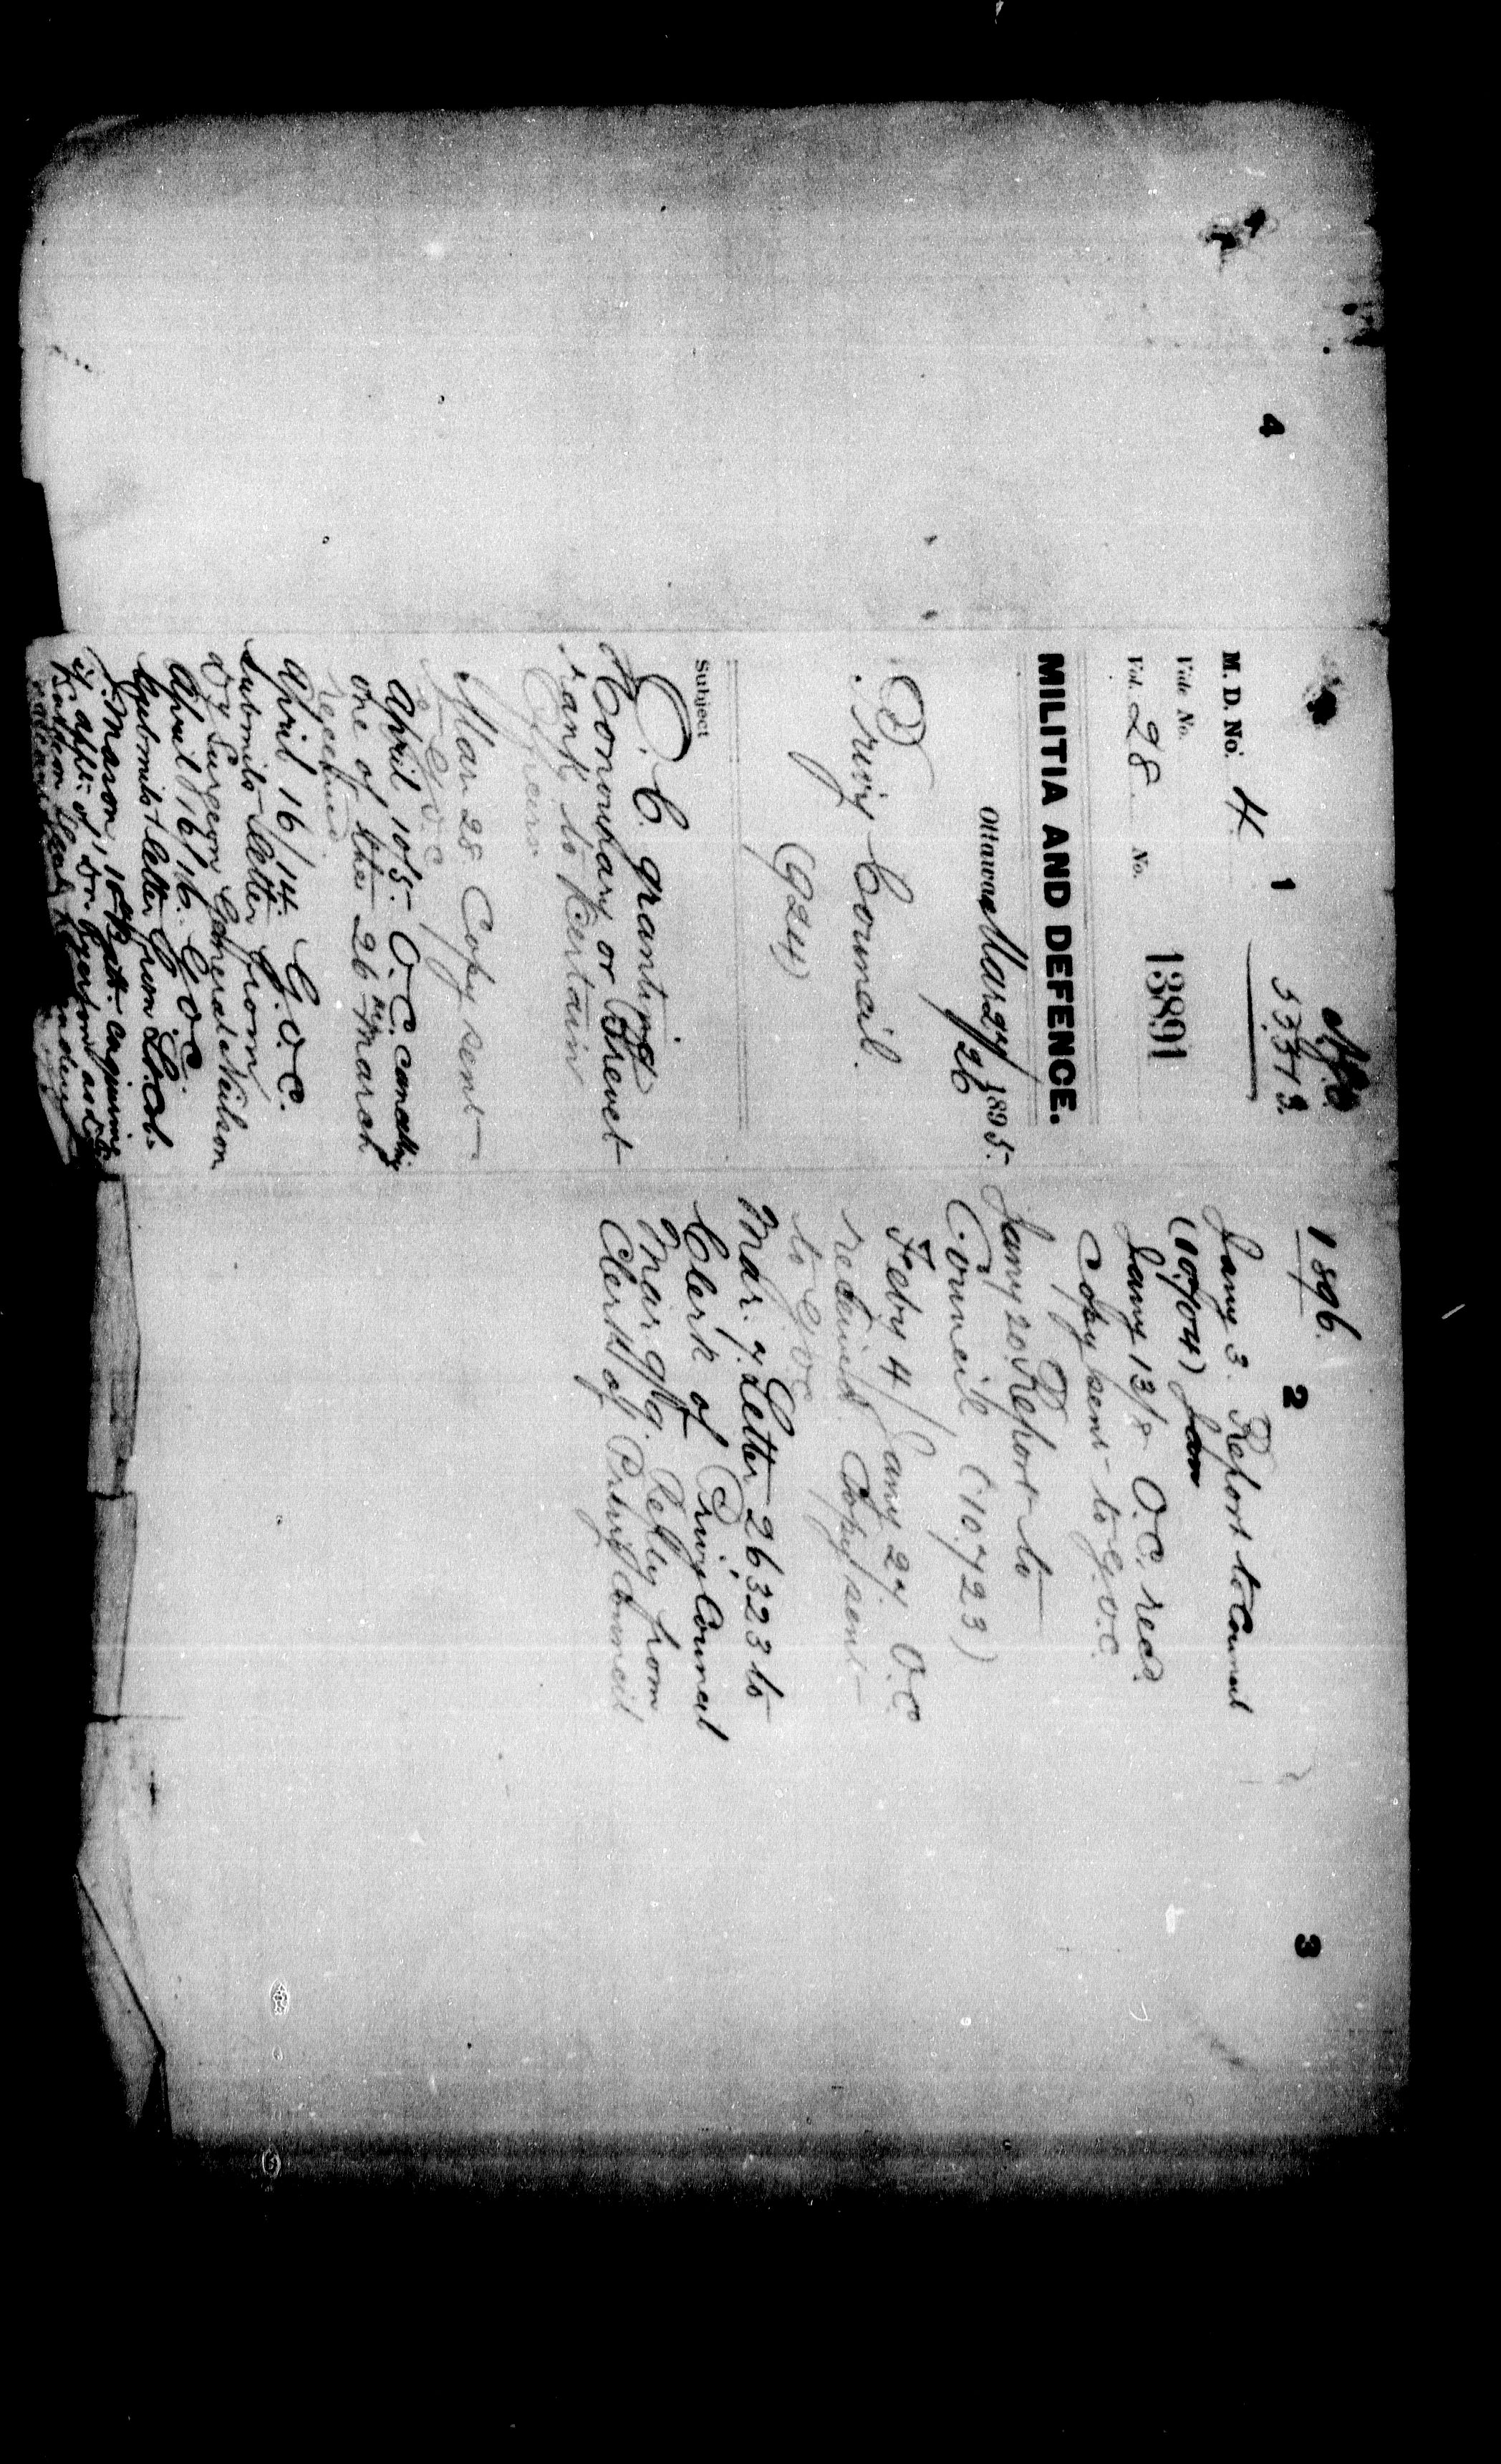 4
1
N.S.
53313.
M. D. No. 4
Vide No.
Vol. 28 No. 13891
MILITIA AND DEFENCE.
Ottawa Mar 27/26 1895.
Privy Council.
(924)
Subject
O. C. granting
Honourary or Brevet
rank to certain
Officers
Mar 28 Copy sent
to G.O.C.
April 10/5. O.C. cancelling
one of the 26th March
received
April 16/14. G.O.C.
submits letter from
Dy Surgeon General Neilson
April 16/16. G.O.C.
submits letter from Lt. Col.
J. Mason, 10th Batt. enquiring
if applt. of Dr. Ryerson as
1896.
2
Jany 3. Report to Council
(10704) Jan
Jany 13/8 O.C. recd.
Copy sent to G.O.C.
Jany 20. Report to
Council (10723)
Feby 4/Jany 27 O.C.
received Copy sent
to G.O.C.
Mar. 7. Letter 26323 to
Clerk of Privy Council
Mar 9/9. Reply from
Clerk of Privy Council
3